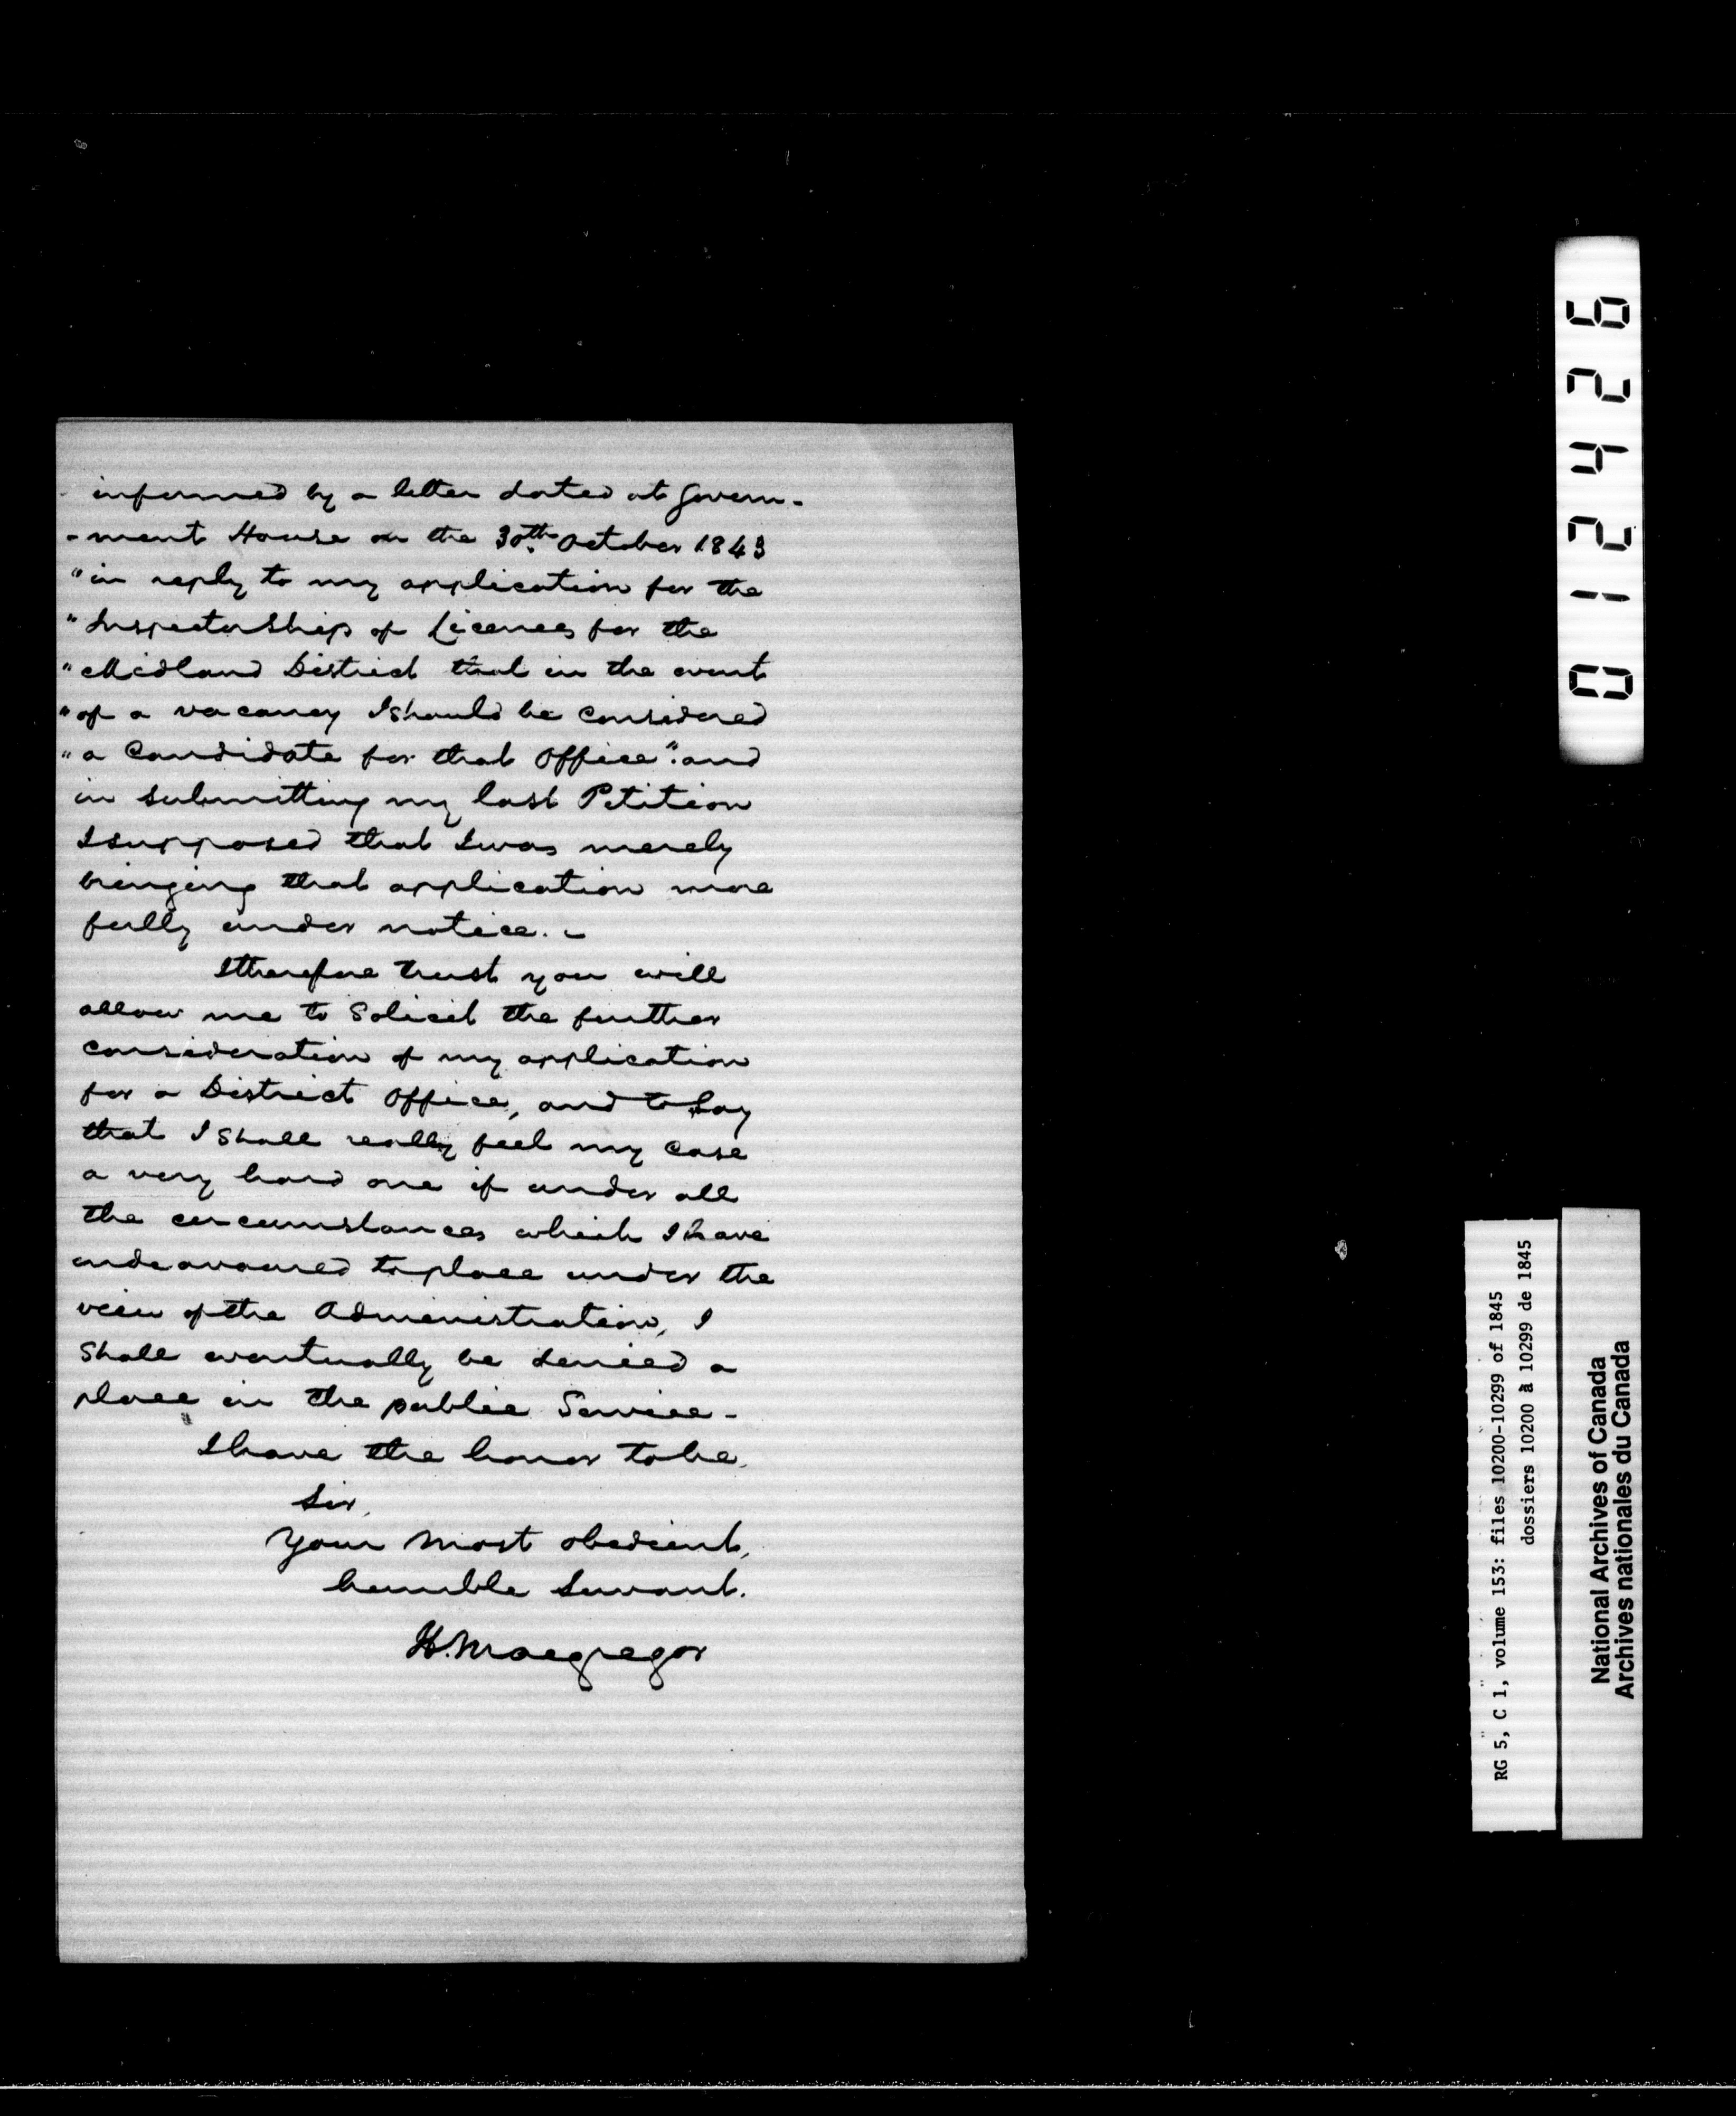 informed by a letter dated at Govern-
-ment House on the 30th October 1843
"in reply to my application for the
"Inspectorship of Licences for the
"Midland District that in the event
"of a vacancy I should be considered
"a Candidate for that Office" and
in submitting my last Petition
I supposed that I was merely
bringing that application more
fully under notice. -
I therefore trust you will
allow me to Solicit the further
consideration of my application
for a District Office, and to say
that I shall really feel my case
a very hard one if under all
the circumstances which I have
endeavoured to place under the
view of the Administration, I
shall eventually be denied a
place in the public Service -
I have the honor to be,
Sir,
Your most obedient,
humble Servant.
H. Macgregor
012426
RG 5, C 1, volume 153: files 10200-10299 of 1845
dossiers 10200 à 10299 de 1845
National Archives of Canada
Archives nationales du Canada